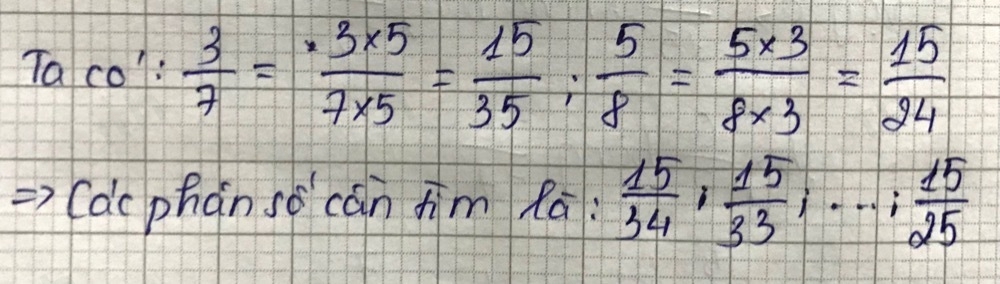 Ta có: 3/7 = 3×5/7×5 = 15/35 ; 5/8 = 5×3/8×3 = 15/24
=> Các phân số cần tìm là: 15/34 ; 15/33 ; ... ; 15/25